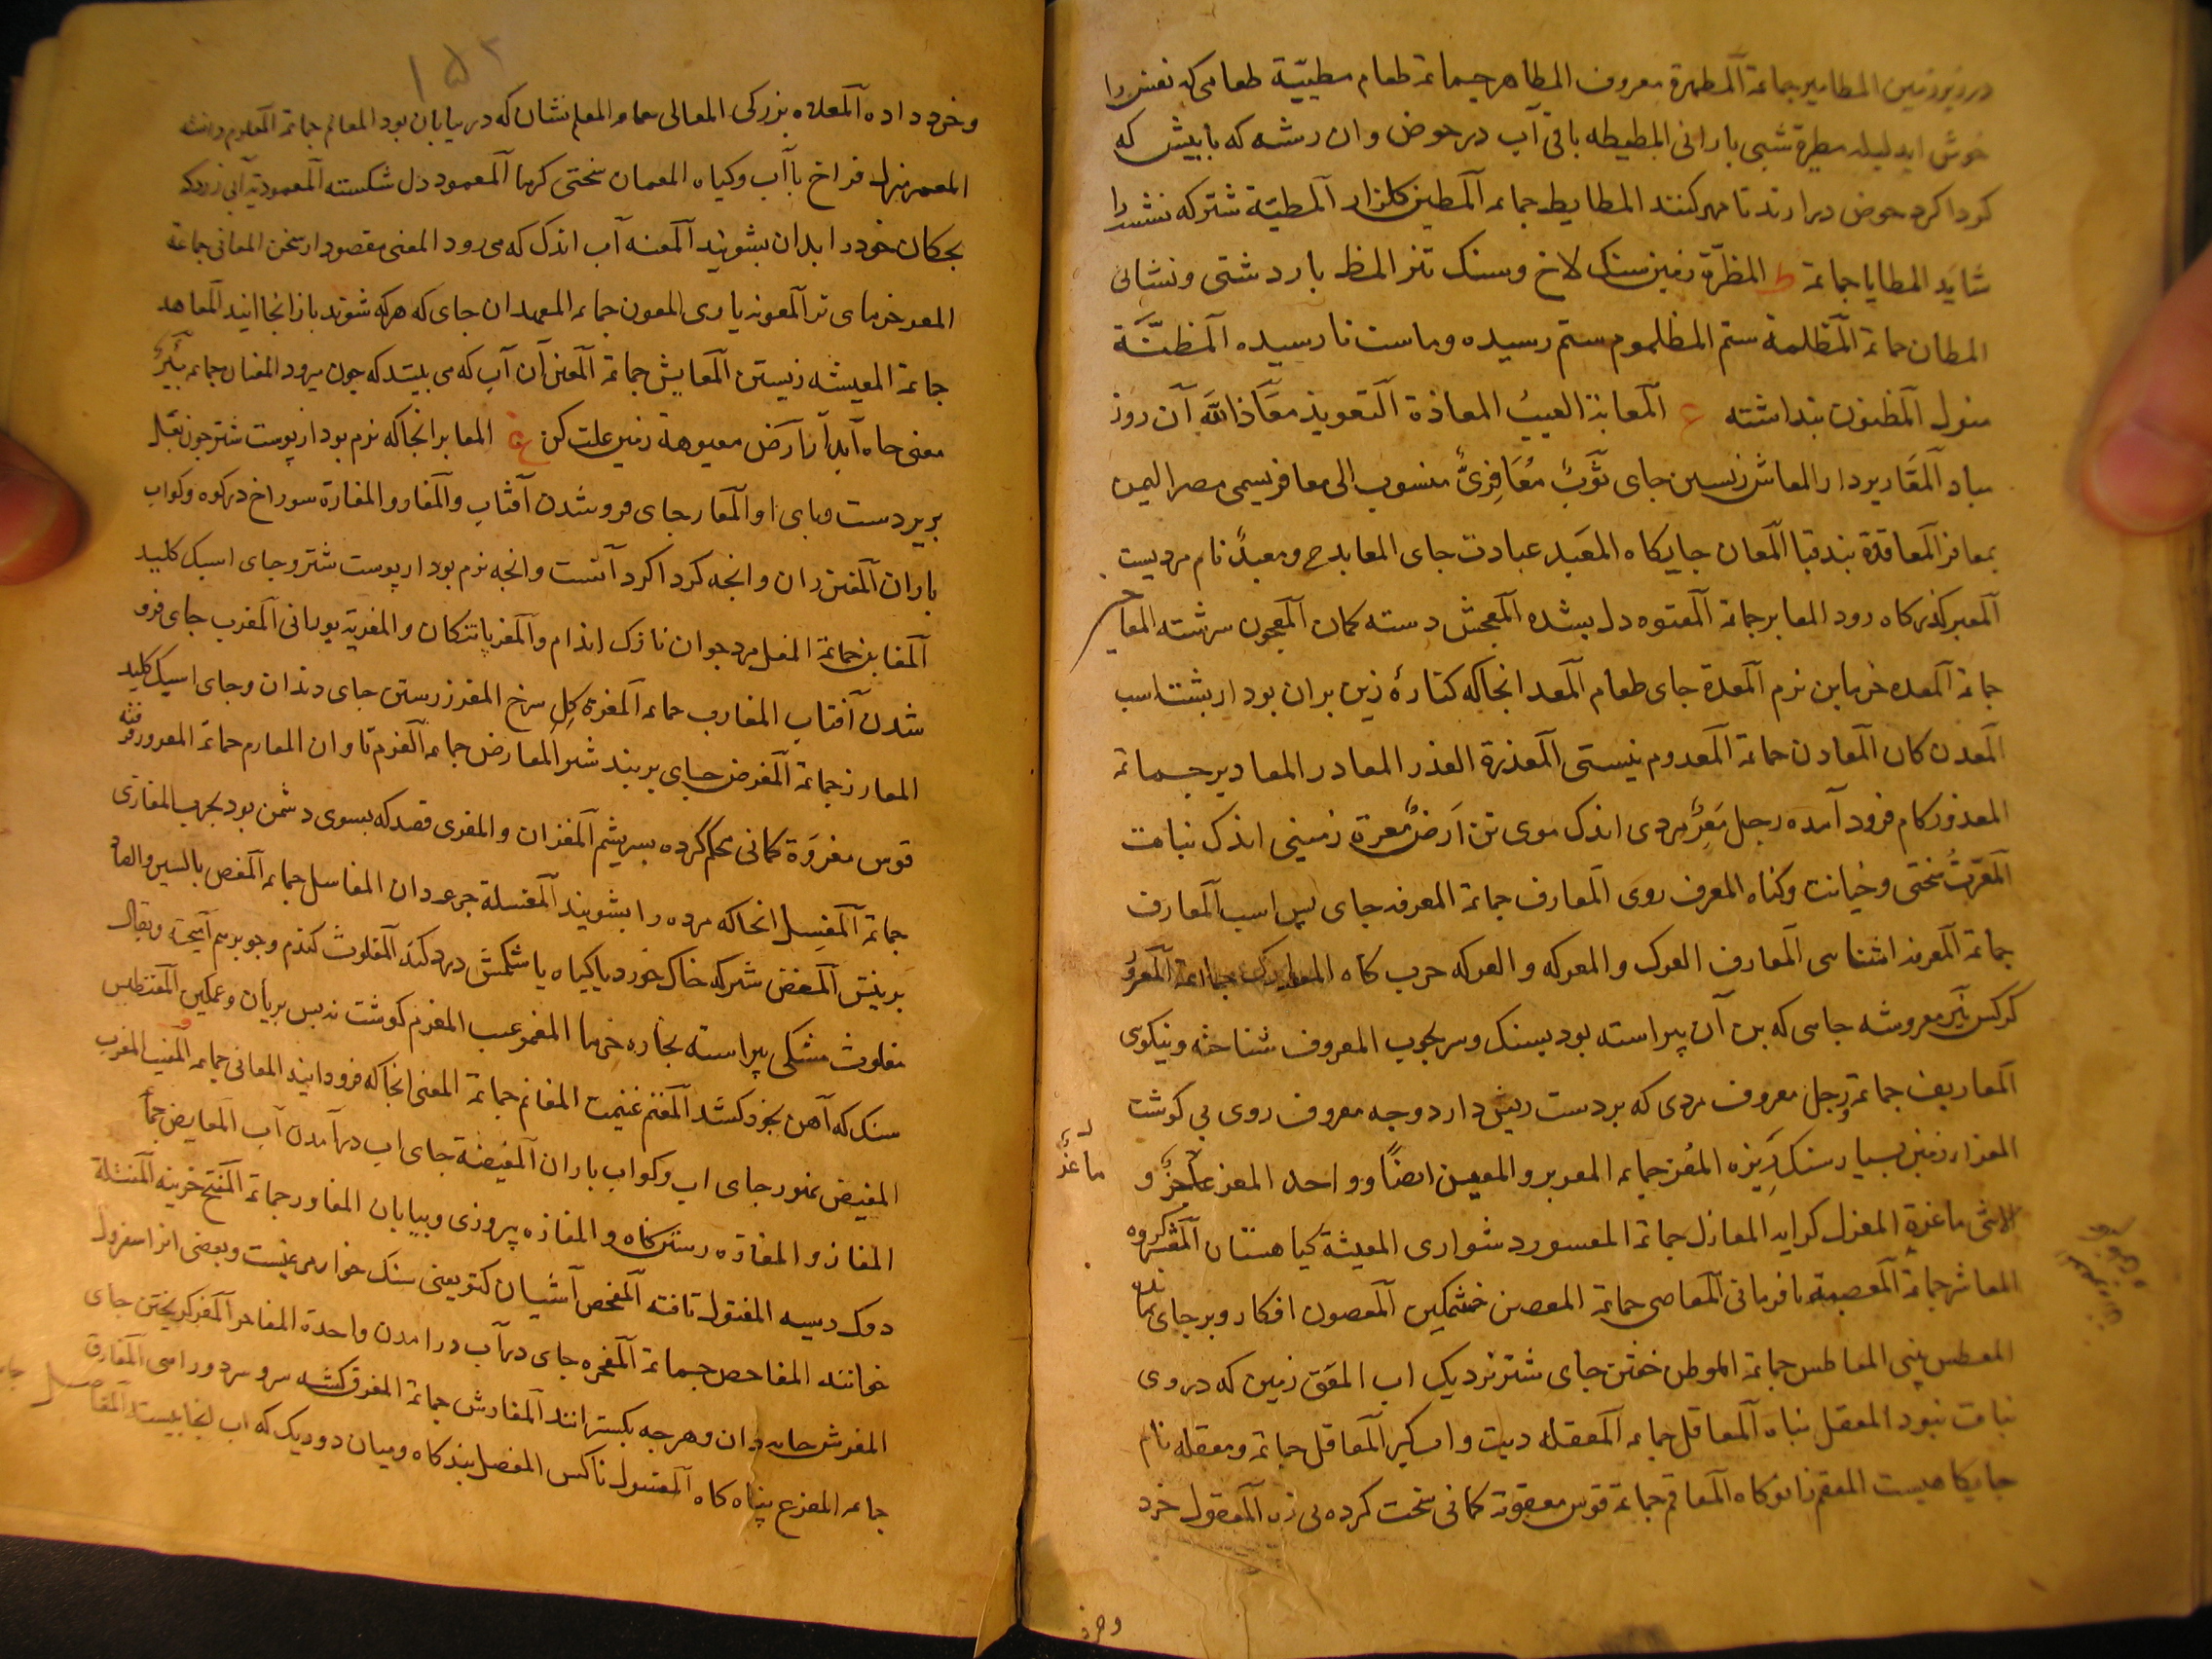 در زیر زمین المطامیر جماعة المطهرة معروف المطاهر جماعة طعام مطیبة طعامی که نفس را
خوش اید لیله مطیرة شبی بارانی المطیطه باقی آب در حوض وان رشه که بابیش که
کرداکرد حوض درارند تا مهر کنند المطایط جماعه المطین کلزار المطیة شتر که نشست را
شاید المطایا جماعة ط المظرة زمین سنک لاخ وسنک تیز المظ نار دشتی ونشانی
المظان جماعة المظلمة ستم المظلوم ستم رسیده وماست نارسیده المظنة
المظنون بنداشته ع المعابة العیب المعاذة التعویذ معاذ الله آن روز
مباد المعاش زیستن جای ثوب معافری منسوب الی معافر یسمی مصر الیمن
بمعافر المعاقدة بند قبا المعان جایکاه المعبد عبادت جای المعابد ج ومعبد نام مردیست
المعبر کذرکاه رود المعابر جماعة المعتوه دل بشده المعجس دسته کمان المعجون سرشته المعاجین
جماعة المعده خرمابن نرم المعدة جای طعام المعد انجا که کنارهٔ زین بران بود از بشت اسب
المعدن کان المعادن جماعة المعدوم نیستی المعذرة العذر المعاذر المعاذیر جماعة
المعذور کام فرود آمده رجل معر مردی اندک موی تن ارض معرة زمینی اندک نبات
المعرت سختی وخیانت وکناه المعرف روی المعارف جماعة المعرفه جای بس اسب المعارف
جماعة المعرفه اشناسی المعارف العرک والمعرکه والعرکه حرب کاه المعارک جماعة المعر
کرکس بئر معروشه جاهی که بن آن پیراسته بود بسنک وسر بجوب المعروف شناخته ونیکوی
المعاریف جماعة رجل معروف مردی که بر دست ریش دارد وجه معروف روی بی کوشت
المعزا زمین بسیار سنک ریزه المعز جماعه والمعیز ایضا وواحد المعز ماعز و
ماعز
الانثی ماعزة المعزل کرانه المعازل جماعة المعسور دشواری المعیشة کیاهستان المعشر کروه
المعاشر جماعة المعصیة نافرمانی المعاصی جماعة خشمکین المعصون افکار وبر جای مانده
المعطس بینی المعاطس جماعة المعطن خفتن جای شتر نزدیک اب المعق زمین که در وی
نبات نبود المعقل بناه المعاقل جماعه المعقله دیت واب کیر المعاقل جماعة ومعقله نام
جایکاهیست المعقم زانوکاه المعاقم جماعة قوس معقوة کمانی سخت کرده بی زه المعقول خرد
وخرد
۱۵۲
وخرد داده المعلاه بزرکی المعالی جماعه المعلم نشان که در بیابان بود المعالم جماعة المعلوم دانسته
المعمر منزل فراخ با آب وکیاه المعمعان سختی کرما المعمود دل شکسته المعمودیه آبی زرد که
بجکان خود را بدان بشویند المعنه آب اندک که می رود المعنی مقصود از سخن المعانی جماعة
المعو خرمای تر المعونه یاری المعون جماعه المعهد ان جای که هر که شوند باز انجا ایند المعاهد
جماعة المعیشه زیستن المعایش جماعة المعین آن آب که می بیند که جون میرود المعنان جماعه بئر
معنی جاه آبدار ارض معیوهة زمین علت کن غ المغابن انجا که نرم بود از پوست شتر جون بغل
بربر دست وپای او المغار جای فرو شدن آفتاب والمغار والمغارة سوراخ در کوه وکواب
باران المغبن ران وانجه کرداکرد آنست وانجه نرم بود از پوست شتر وجای اسبک کلید
المغابن جماعة المغد مرد جوان نازک اندام والمغد باتنکان والمغربه یونانی المغرب جای فرو
شدن آفتاب المغارب جماعه المغرة کل سرخ المغرز رستن جای دندان وجای اسبک کلید
المغارز جماعة المغرض جای بربند شتر المغارض جماعه المغرم تاوان المغارم جماعة المغرور فریفته
قوس مغروة کمانی محکم کرده بسریشم المغزان والمغزی قصد که بسوی دشمن بود بحرب المغازی
جماعة المغسل انجا که مرده را بشویند المغتسلة جرعدان المغاسل جماعه المغص بالسین والصاد
برینش المغص شتر که خاک خورد یا کیاه یا شکمش درد کند المغلوث کندم وجو برهم آمیخته ویقال
مغلوث مشکی پیراسته بخاره خرما المغموم کوشت بریان وغمکین المغنطیس
سنک که آهن بخود کشد المغنم غنیمت المغانم جماعة المغنی انجا که فرود ایند المغانی جماعه المغیب المغرب
المغیض جای اب وکواب باران المغیضة جای اب درآمدن آب المغایض جما
المفاز والمفازه رستن کاه والمفازه پیروزی وبیابان المفاوز جماعة المفتح خزینه المفتلة
دوک رسیه المفتول تافته المفحص آشیان کتو یعنی سنک خوار مرغیست وبعضی انرا سفرول
خوانند المفاحص جماعة المفجره جای درآب درامدن واحدة المفاجر المفر کریختن جای
المفرش جامه دان وهرجه بکسترانند المفارش جماعة المفرق کشه سر وسر دو راهی المفارق
جماعه المفزع پناه کاه المفسول ناکس المفصل بند کاه ومیان دو ریک که اب انجا بیستد المفاصل